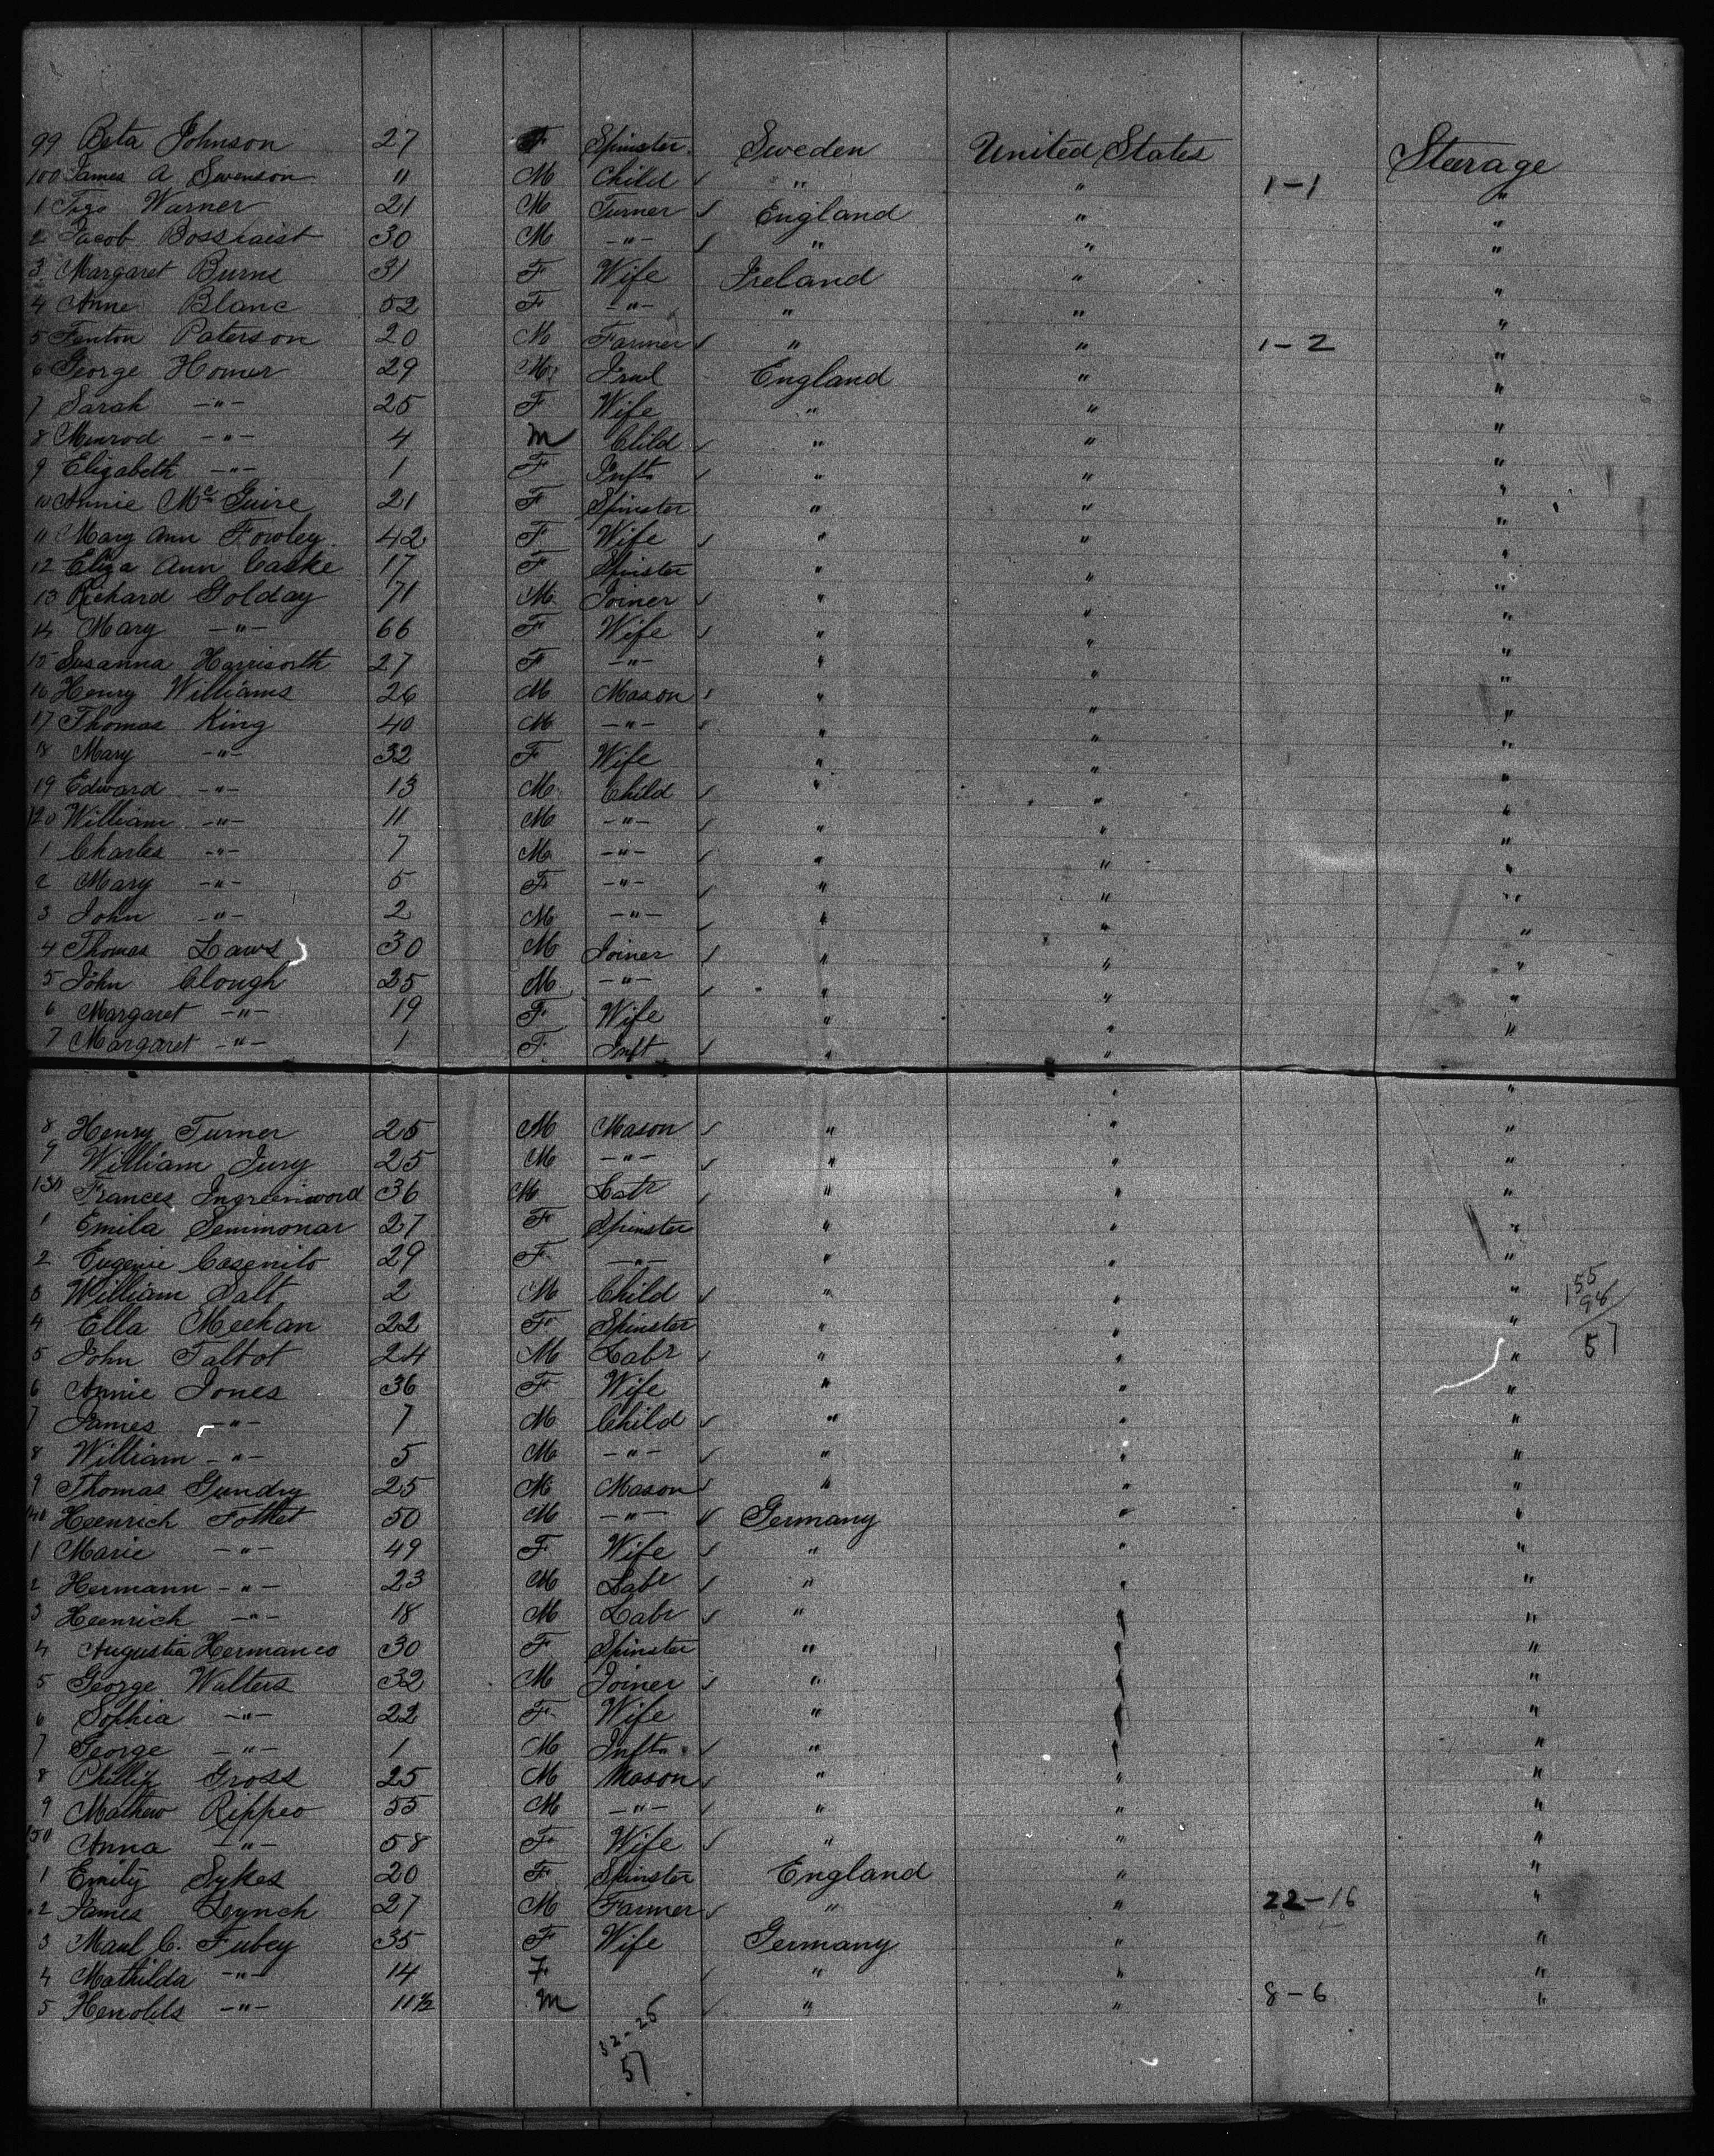 99 Beta Johnson 27 F Spinster Sweden United States Steerage
100 James A Swenson 11 M Child " " 1-1 "
1 Warner 21 M Turner England " "
2 Jacob 30 M -"- " " "
3 Margaret Burns 31 F Wife Ireland " "
4 Anne Blanc 52 F -"- " " "
5 Fenton Paterson 20 M Farmer " " 1-2 "
6 George Homer 29 M England " "
7 Sarah -"- 25 F Wife " " "
8 -"- 4 M Child " " "
9 Elizabeth -"- 1 F Inft " " "
10 Annie McGuire 21 F Spinster " " "
11 Mary Ann Fowley 42 F Wife " " "
12 Eliza Ann 17 F Spinster " " "
13 Richard Golday 71 M Joiner " " "
14 Mary -"- 66 F Wife " " "
15 Susanna Harrisorth 27 F -"- " " "
16 Henry Williams 26 M Mason " " "
17 Thomas King 40 M -"- " " "
18 Mary -"- 32 F Wife " " "
19 Edward -"- 13 M Child " " "
120 William -"- 11 M -"- " " "
1 Charles -"- 7 M -"- " " "
2 Mary -"- 5 F -"- " " "
3 John -"- 2 M -"- " " "
4 Thomas Laws 30 M Joiner " " "
5 John Clough 25 M -"- " " "
6 Margaret -"- 19 F Wife " " "
7 Margaret -"- 1 F Inft " " "
8 Henry Turner 25 M Mason " " "
9 William Jury 25 M -"- " " "
130 Frances Ingreenwood 36 M Labr " " "
1 Emila Semmonar 27 F Spinster " " "
2 Eugenie Casenito 29 F -"- " " "
3 William Salt 2 M Child " " " 155
98
4 Ella Meehan 22 F Spinster " " "
5 John Talbot 24 M Labr " " " 57
6 Annie Jones 36 F Wife " " "
7 James -"- 7 M Child " " "
8 William -"- 5 M -"- " " "
9 Thomas Gundry 25 M Mason " " "
140 Heenrich 50 M -"- Germany " "
1 Marie -"- 49 F Wife " " "
2 Hermann -"- 23 M Labr " " "
3 Heenrich -"- 18 M Labr " " "
4 Augustia Hermanco 30 F Spinster " " "
5 George Walters 32 M Joiner " " "
6 Sophia -"- 22 F Wife " " "
7 George -"- 1 M Inft " " "
8 Phillip Gross 25 M Mason " " "
9 Mathew Rippeo 55 M -"- " " "
150 Anna -"- 58 F Wife " " "
1 Emily Sykes 20 F Spinster England " "
2 James Lynch 27 M Farmer " " 22-16 "
3 C. Fubey 35 F Wife Germany " "
4 Mathilda -"- 14 F " " "
5 -"- 11½ M " " 8-6 "
32-25
57